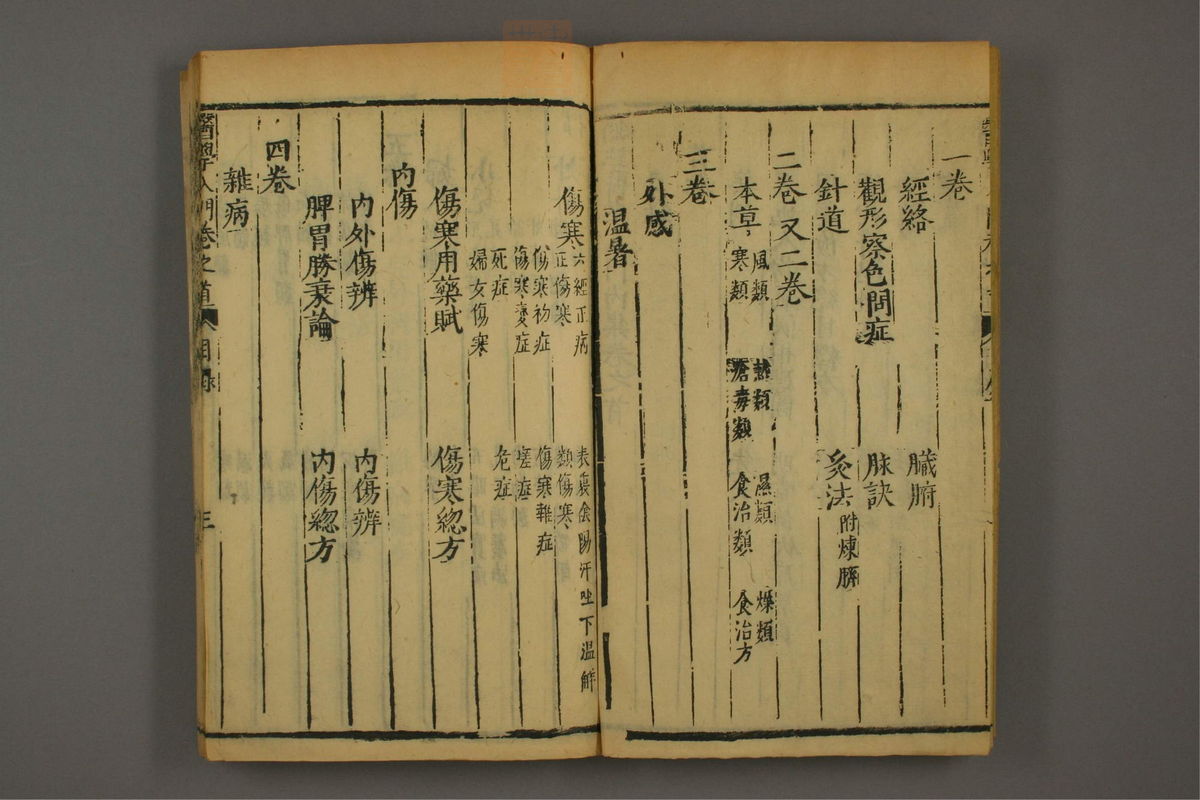 一卷
經絡 臟腑
觀形察色問症 脉訣
針道 灸法 附煉臍
二卷 又二卷
本草 風類 熱類 濕類 燥類
寒類 瘡毒類 食治類 食治方
三卷
外感
温暑
傷寒 六經正病 表裏陰陽汗吐下温解
正傷寒 類傷寒
傷寒初症 傷寒雜症
傷寒變症 瘥症
死症 危症
婦女傷寒
傷寒用藥賦 傷寒總方
内傷
内外傷辨 内傷辨
脾胃勝衰論 内傷總方
四卷
雜病
醫學入門卷之首 目錄 三